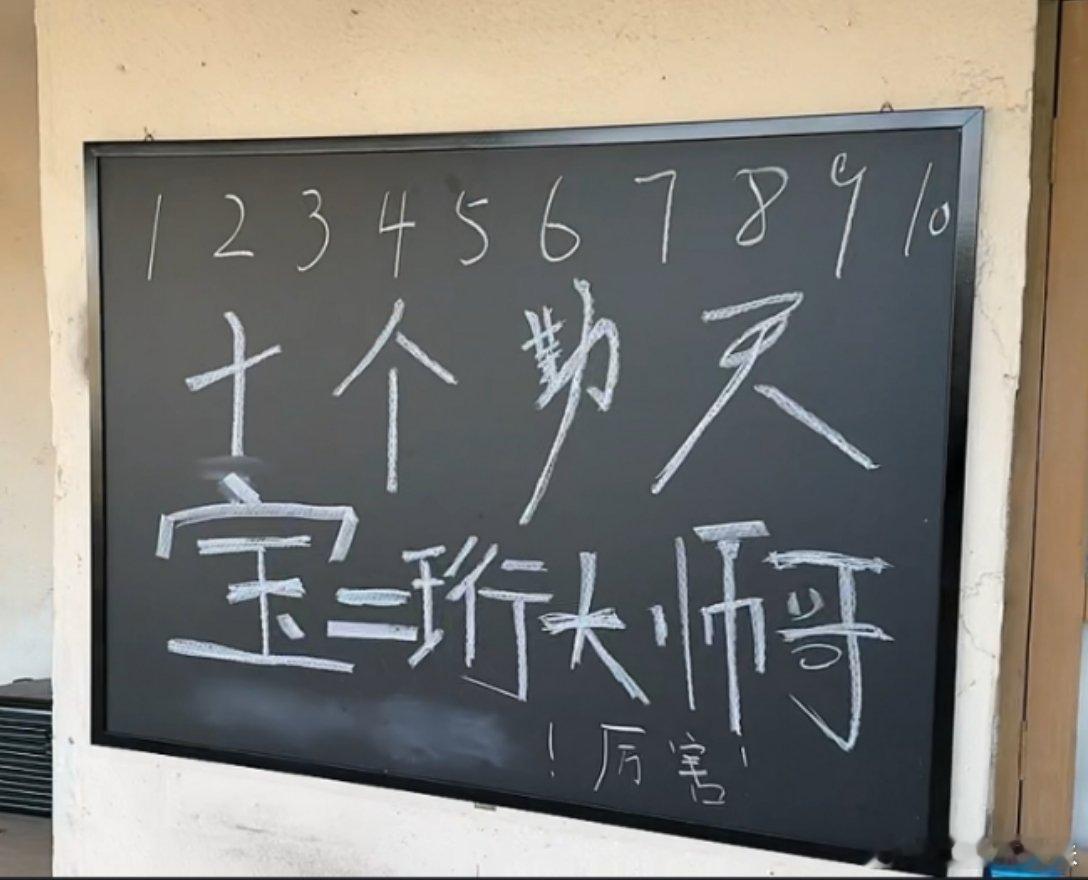 1 2 3 4 5 6 7 8 9 10
十个勤天
宝二珩大师哥
！厉害！